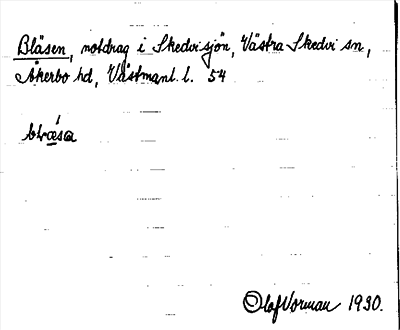 Bläsen, notdrag i Skedvisjön, Västra Skedvi sn,
Åkerbo hd, Västmanl. l. 54
blæ̀sa
Olof Vorman 1930.